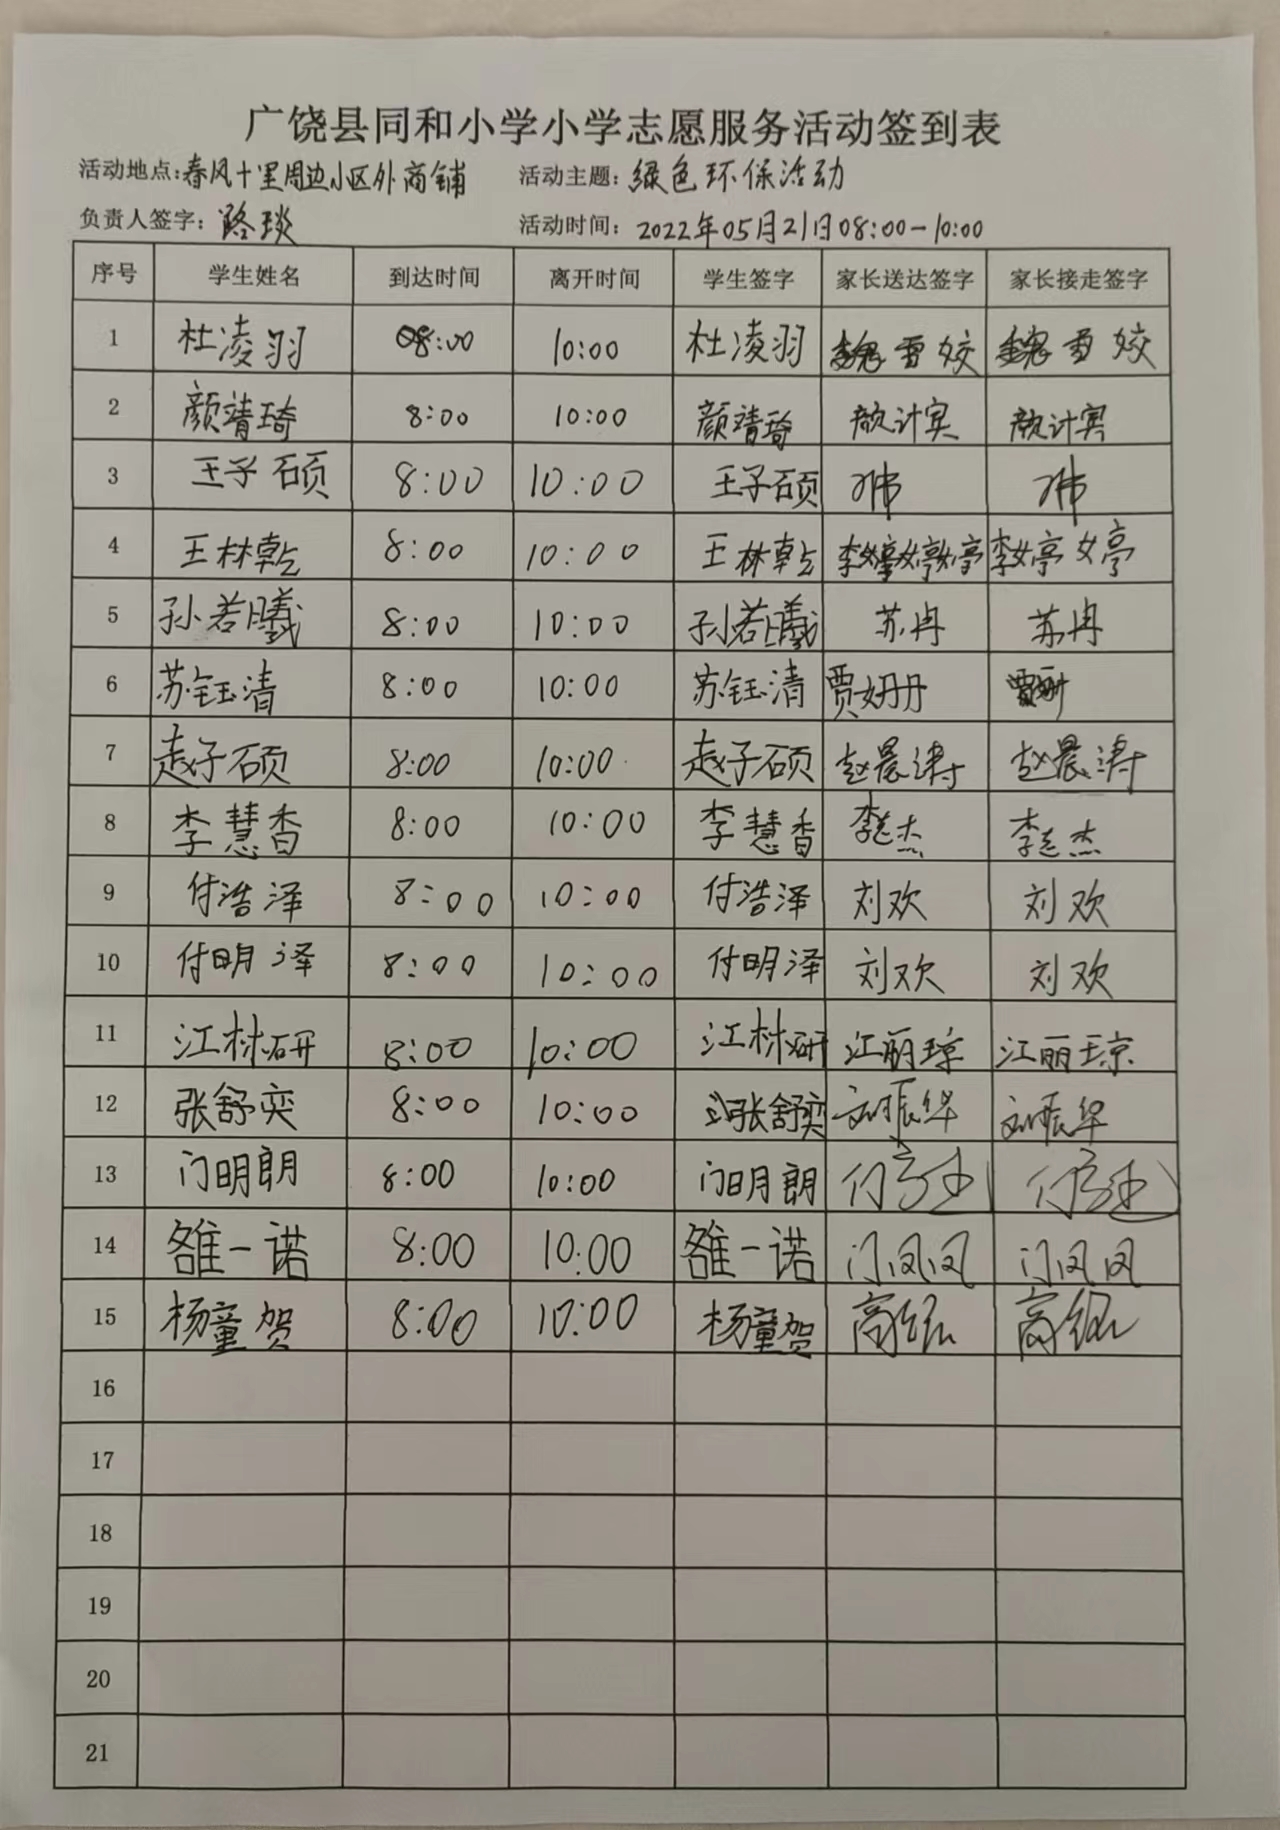 广饶县同和小学小学志愿服务活动签到表
活动地点:春风十里周边小区外商铺 活动主题:绿色环保活动
负责人签字:路琰 活动时间:2022年05月21日08:00-10:00
序号 学生姓名 到达时间 离开时间 学生签字 家长送达签字 家长接走签字
1 杜凌羽 08:00 10:00 杜凌羽 魏雪姣 魏雪姣
2 颜靖琦 8:00 10:00 颜靖琦 颜计宾 颜计宾
3 王子硕 8:00 10:00 王子硕
4 王林乾 8:00 10:00 王林乾
5 孙若曦 8:00 10:00 孙若曦 苏冉 苏冉
6 苏钰清 8:00 10:00 苏钰清 贾姗丹
7 赵子硕 8:00 10:00 赵子硕 赵晨涛 赵晨涛
8 李慧香 8:00 10:00 李慧香
9 付浩泽 8:00 10:00 付浩泽 刘欢 刘欢
10 付明泽 8:00 10:00 付明泽 刘欢 刘欢
11 江林研 8:00 10:00 江林研 江丽琼 江丽琼
12 张舒奕 8:00 10:00 张舒奕 刘振华 刘振华
13 门明朗 8:00 10:00 门明朗
14 雒一诺 8:00 10:00 雒一诺 门凤凤 门凤凤
15 杨童贺 8:00 10:00 杨童贺
16
17
18
19
20
21